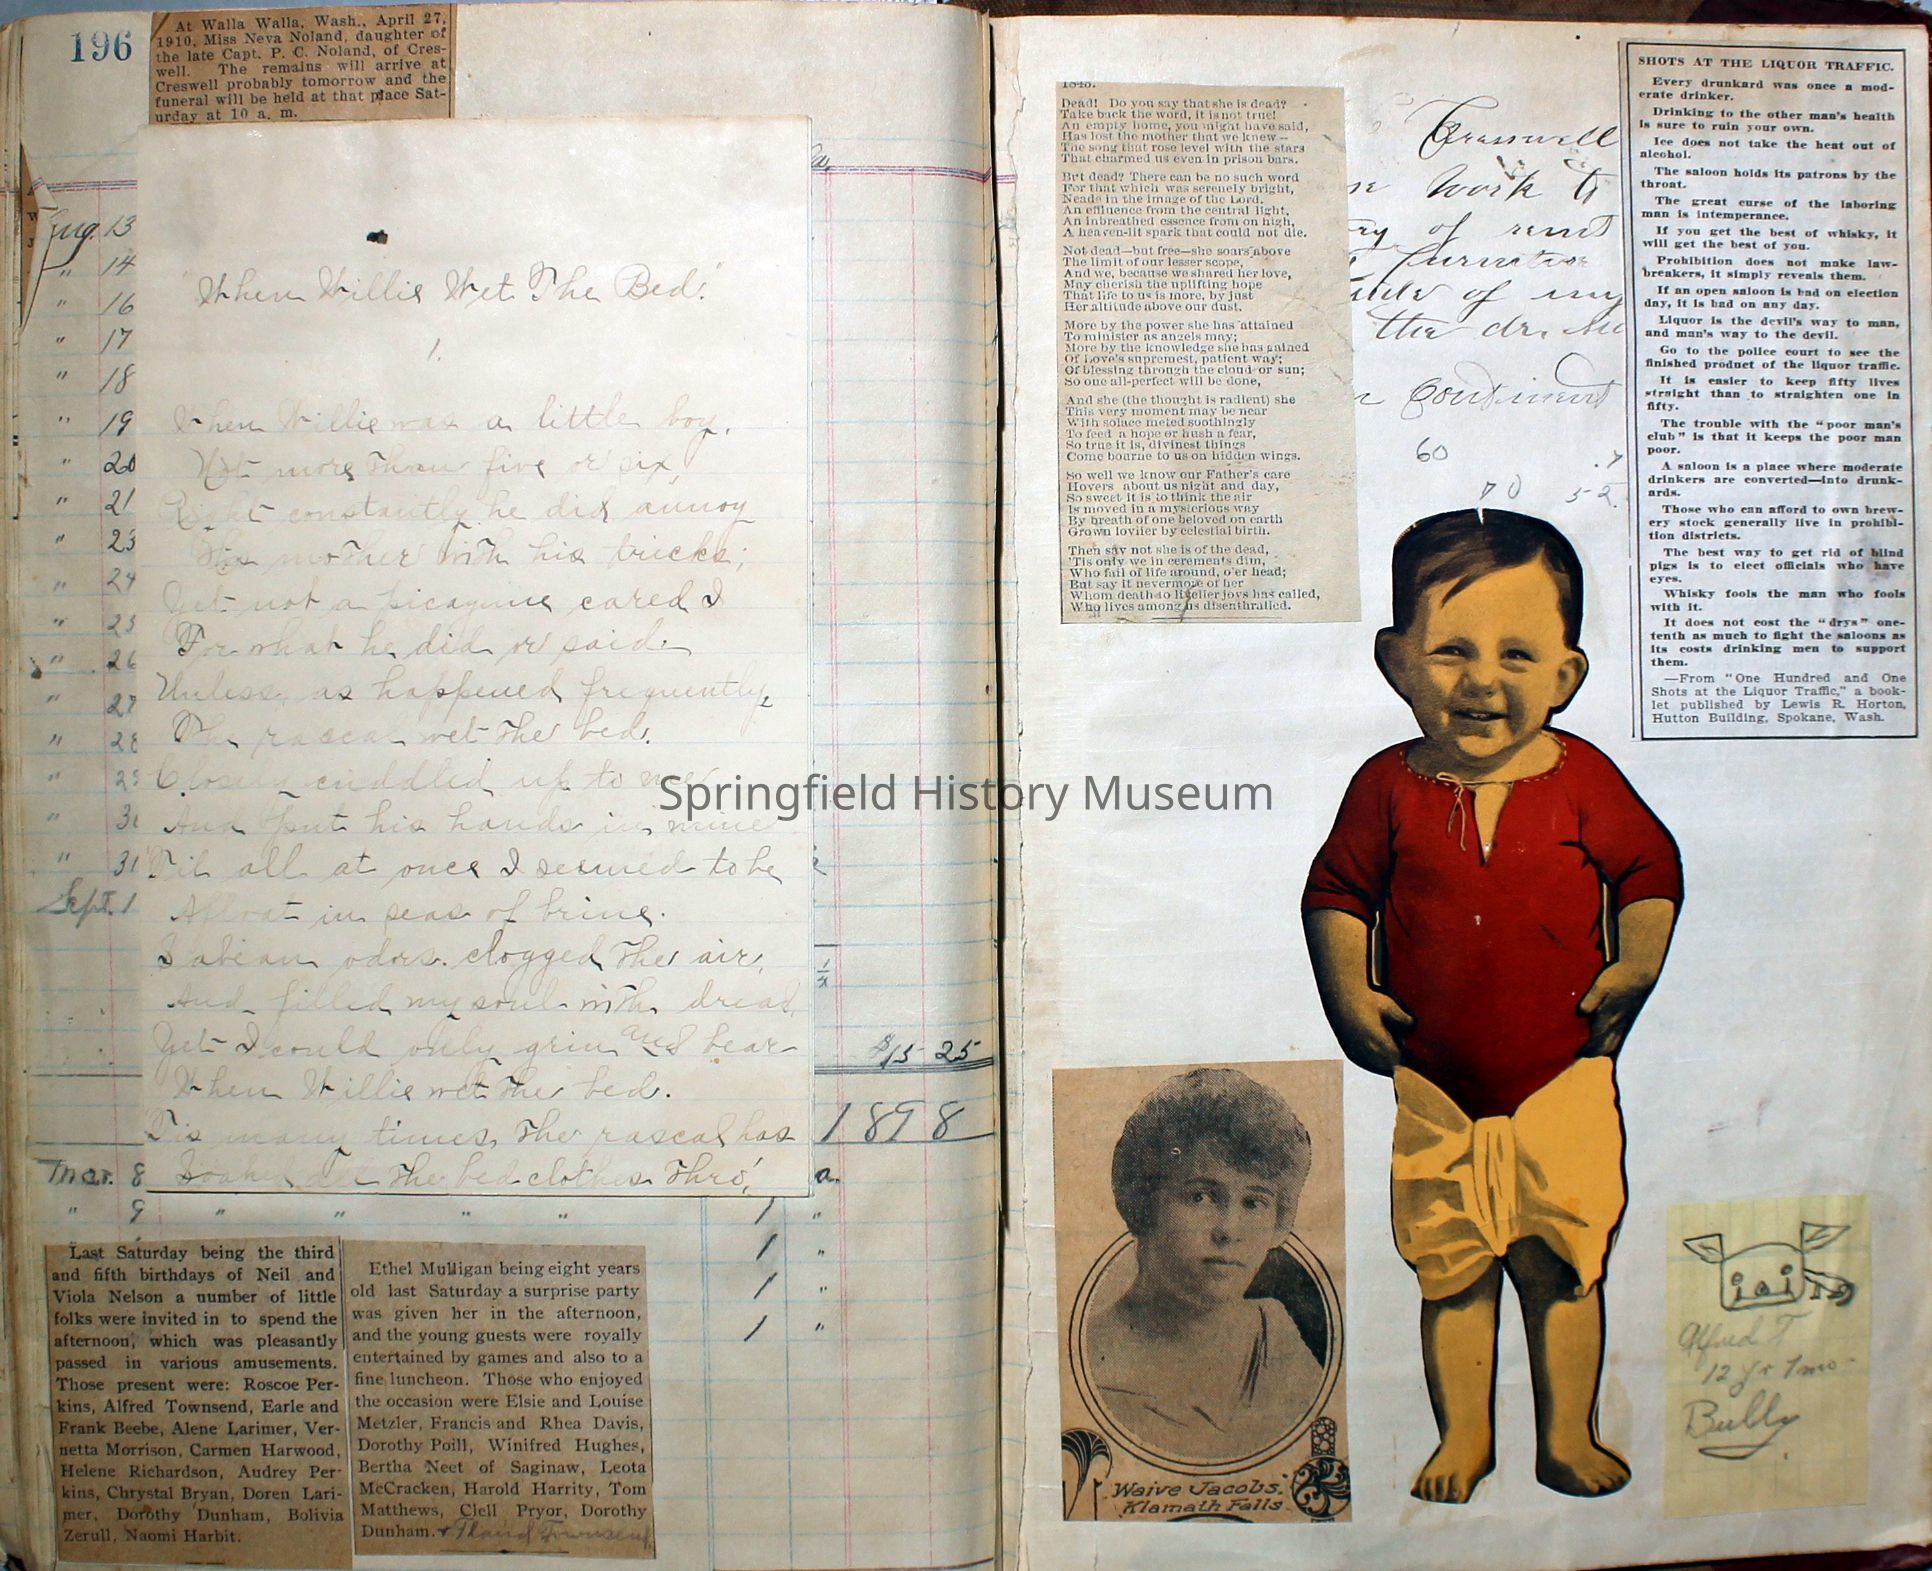 196
At Walla Walla, Wash., April 27,
1910, Miss Neva Noland, daughter of
the late Capt. P. C. Noland, of Cres-
well. The remains will arrive at
Creswell probably tomorrow and the
funeral will be held at that place Sat-
urday at 10 a. m.
Aug. 13
" 14
" 16
" 17
" 18
" 19
" 20
" 21
" 23
" 24
" 25
" 26
" 27
" 28
" 31
Sept. 1
"When Willie Wet The Bed."
1.
When Willie was a little boy,
Not more than five or six,
Right constantly he did annoy
His mother with his tricks;
Yet not a picayune cared I
For what he did or said
Unless, as happened frequently
The rascal wet the bed.
Closely cuddled up to me
And put his hands in mine
Til all at once I seemed to be
Afloat in seas of brine.
Sabean odors clogged the air,
And filled my soul with dread
Yet I could only grin and bear
When Willie wet the bed.
Tis many times the rascal has
Soaked all the bed clothes thro',
$15 25
1898
Mar. 8
" 9 " " " " 1 "
1 "
1 "
1 "
Last Saturday being the third
and fifth birthdays of Neil and
Viola Nelson a number of little
folks were invited in to spend the
afternoon, which was pleasantly
passed in various amusements.
Those present were: Roscoe Per-
kins, Alfred Townsend, Earle and
Frank Beebe, Alene Larimer, Ver-
netta Morrison, Carmen Harwood,
Helene Richardson, Audrey Per-
kins, Chrystal Bryan, Doren Lari-
mer, Dorothy Dunham, Bolivia
Zerull, Naomi Harbit.
Ethel Mulligan being eight years
old last Saturday a surprise party
was given her in the afternoon,
and the young guests were royally
entertained by games and also to a
fine luncheon. Those who enjoyed
the occasion were Elsie and Louise
Metzler, Francis and Rhea Davis,
Dorothy Poill, Winifred Hughes,
Bertha Neet of Saginaw, Leota
McCracken, Harold Harrity, Tom
Matthews, Clell Pryor, Dorothy
Dunham. + Townsend
Dead! Do you say that she is dead?
Take back the word, it is not true!
An empty home, you might have said,
Has lost the mother that we knew—
The song that rose level with the stars
That charmed us even in prison bars.
But dead? There can be no such word
For that which was serenely bright,
Neade in the image of the Lord.
An effluence from the central light,
An inbreathed essence from on high,
A heaven-lit spark that could not die.
Not dead—but free—she soars above
The limit of our lesser scope,
And we, because we shared her love,
May cherish the uplifting hope
That life to us is more, by just
Her altitude above our dust.
More by the power she has attained
To minister as angels may;
More by the knowledge she has gained
Of Love's supremest, patient way;
Of blessing through the cloud or sun;
So one all-perfect will be done,
And she (the thought is radient) she
This very moment may be near
With solace meted soothingly
To feed a hope or hush a fear,
So true it is, divinest things
Come bourne to us on hidden wings.
So well we know our Father's care
Hovers about us night and day,
So sweet it is to think the air
Is moved in a mysterious way
By breath of one beloved on earth
Grown lovlier by celestial birth.
Then say not she is of the dead,
'Tis only we in cerements dim,
Who fail of life around, o'er head;
But say it nevermore of her
Whom death to livelier joys has called,
Who lives among us disenthralled.
Cresswell
work to
of rent
of my
the
60
70 52
SHOTS AT THE LIQUOR TRAFFIC.
Every drunkard was once a mod-
erate drinker.
Drinking to the other man's health
is sure to ruin your own.
Ice does not take the heat out of
alcohol.
The saloon holds its patrons by the
throat.
The great curse of the laboring
man is intemperance.
If you get the best of whisky, it
will get the best of you.
Prohibition does not make law-
breakers, it simply reveals them.
If an open saloon is bad on election
day, it is bad on any day.
Liquor is the devil's way to man,
and man's way to the devil.
Go to the police court to see the
finished product of the liquor traffic.
It is easier to keep fifty lives
straight than to straighten one in
fifty.
The trouble with the "poor man's
club" is that it keeps the poor man
poor.
A saloon is a place where moderate
drinkers are converted—into drunk-
ards.
Those who can afford to own brew-
ery stock generally live in prohibi-
tion districts.
The best way to get rid of blind
pigs is to elect officials who have
eyes.
Whisky fools the man who fools
with it.
It does not cost the "drys" one-
tenth as much to fight the saloons as
its costs drinking men to support
them.
—From "One Hundred and One
Shots at the Liquor Traffic," a book-
let published by Lewis R. Horton,
Hutton Building, Spokane, Wash.
Waive Jacobs.
Klamath Falls
Alfred T
12 yr 7 mo
Bubby
Springfield History Museum